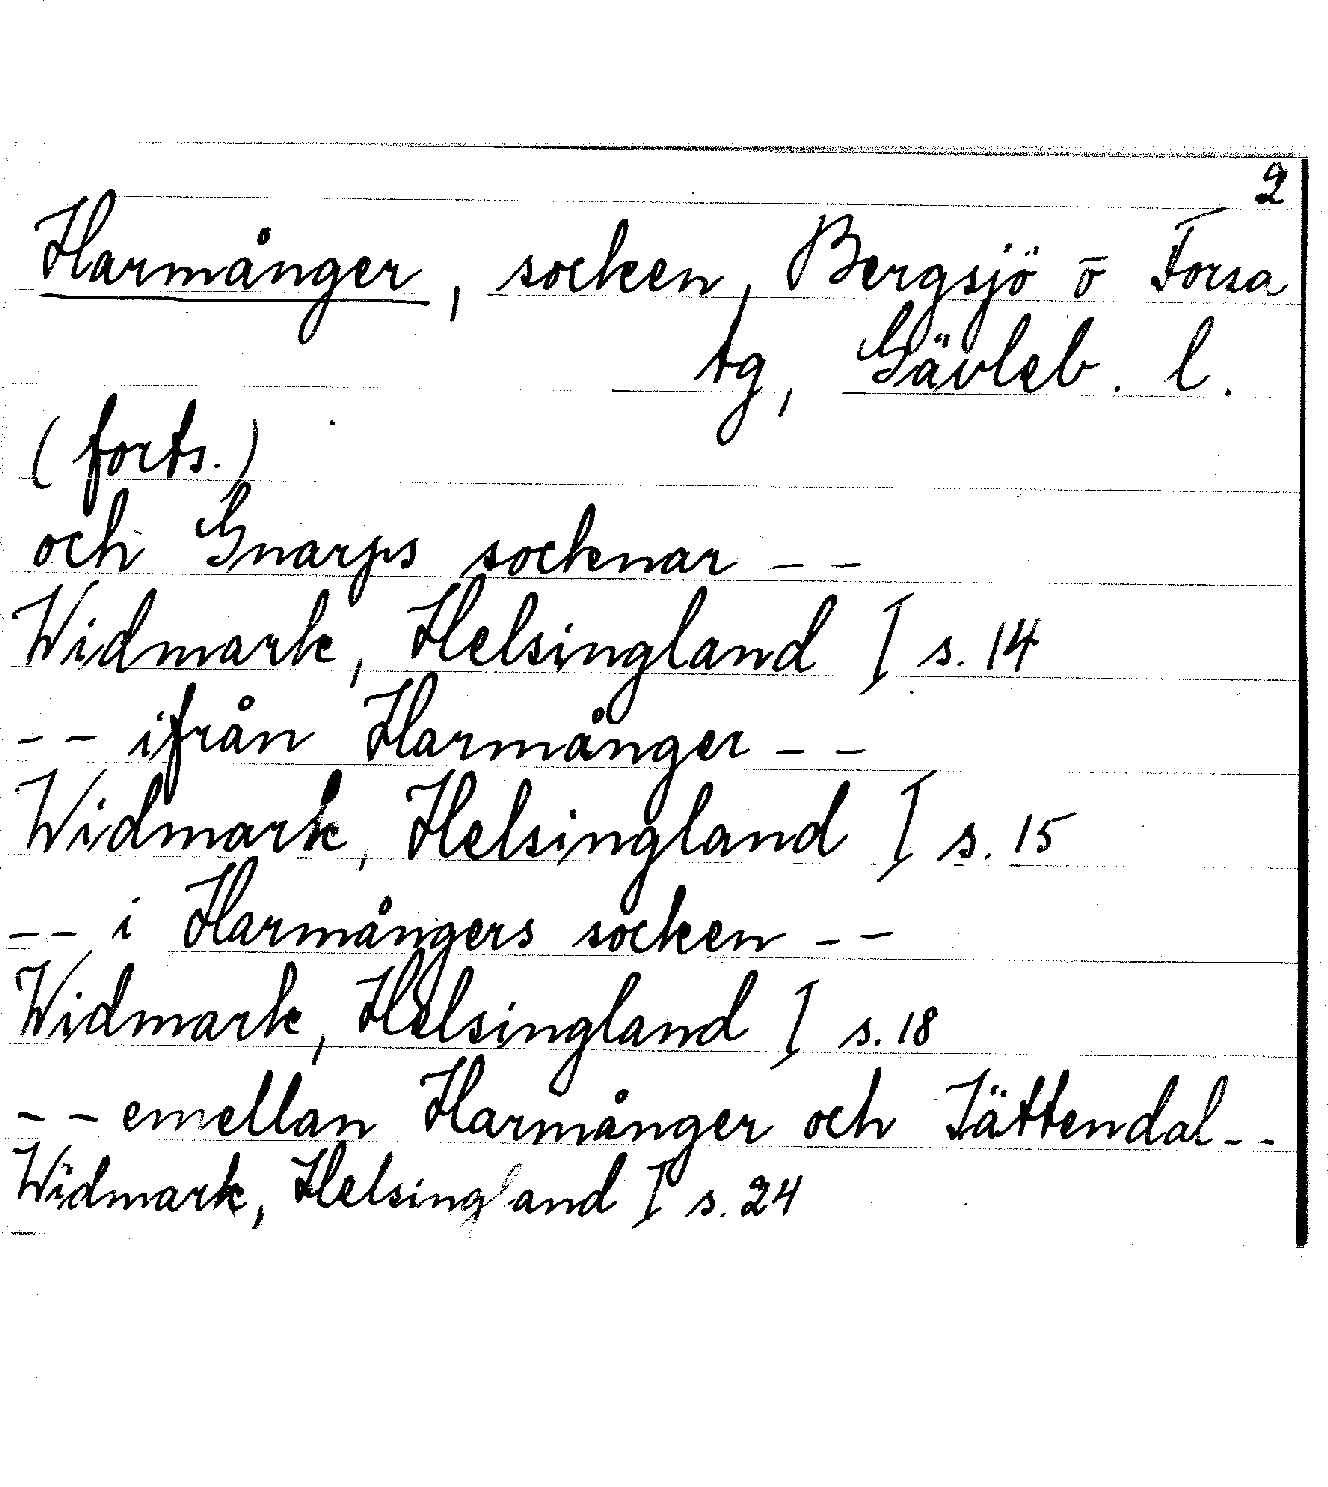 2
Harmånger, socken, Bergsjö o Forsa
tg, Gävleb. l.
(forts.)
och Gnarps socknar - -
Widmark, Helsingland I s. 14
- - ifrån Harmånger - -
Widmark, Helsingland I s. 15
- - i Harmångers socken - -
Widmark, Helsingland I s. 18
- - emellan Harmånger och Jättendal - -
Widmark, Helsingland I s. 24